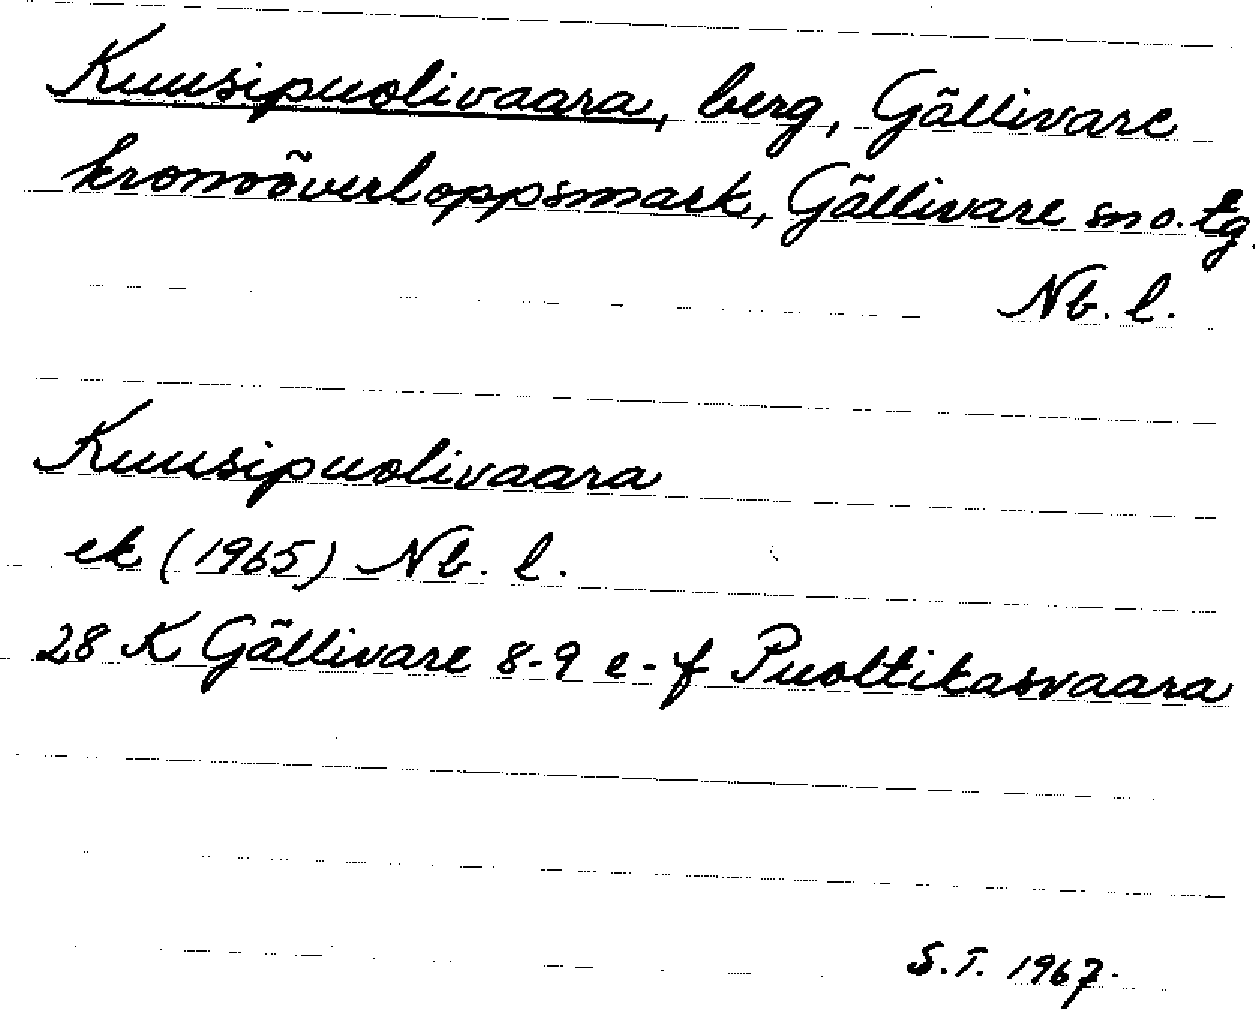 Kuusipuolivaara, berg, Gällivare
kronoöverloppsmark, Gällivare sn o. tg.
Nb. l.
Kuusipuolivaara
ek (1965) Nb. l.
28 K Gällivare 8-9 e-f Puoltikasvaara
S.T. 1967.